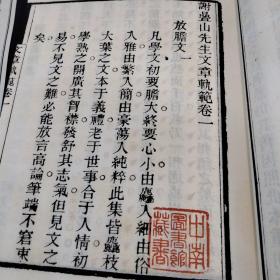 謝疊山先生文章軌範卷一
放膽文一
凡學文初要膽大終要心小由麤入細由俗
入雅由繁入簡由豪蕩入純粹此集皆麤枝
大葉之文本于義禮老于世事合于人情初
學熟之開廣其胷襟發舒其志氣但見文之
易不見文之難必能放言高論筆端不窘束
矣
文章軌範卷一
中南
圖書館
藏書